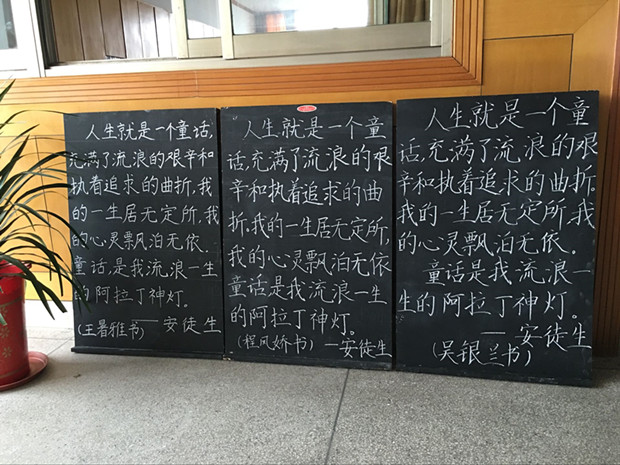 人生就是一个童话,
充满了流浪的艰辛和
执着追求的曲折,我
的一生居无定所,我
的心灵飘泊无依.
童话,是我流浪一生
的阿拉丁神灯。
——安徒生
(王暑雅书)
人生就是一个童
话,充满了流浪的艰
辛和执着追求的曲
折,我的一生居无定所,
我的心灵飘泊无依
童话是我流浪一生
的阿拉丁神灯。
(程风娇书) —安徒生
人生就是一个童
话,充满了流浪的艰
辛和执着追求的曲折.
我的一生居无定所.我
的心灵飘泊无依.
童话是我流浪一
生的阿拉丁神灯。
——安徒生
(吴银兰书)